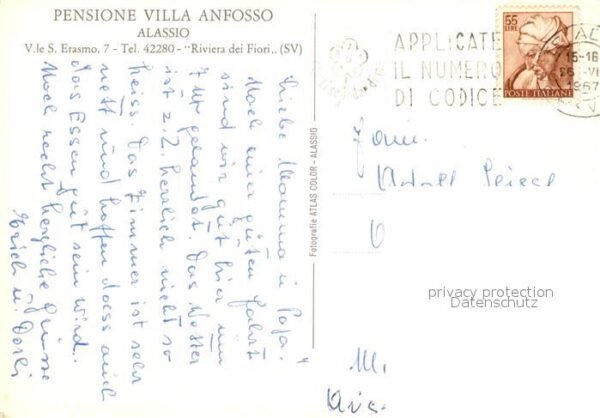 PENSIONE VILLA ANFOSSO
ALASSIO
V.le S. Erasmo, 7 - Tel. 42280 - "Riviera dei Fiori,, (SV)
55
LIRE
POSTE ITALIANE
APPLICATE
IL NUMERO
DI CODICE
15-16
1967
Liebe Mamma u Papa!
Nach einer guten Fahrt
sind wir gut hier um
7 Uhr gelandet. Das Wetter
ist z.Z. herrlich nicht so
heiss. Das Zimmer ist sehr
nett und hoffen dass auch
das Essen gut sein wird.
Noch recht herzliche Grüsse
Erich u. Dorli
Fotografie ATLAS COLOR - ALASSIO
Fam.
privacy protection
Datenschutz